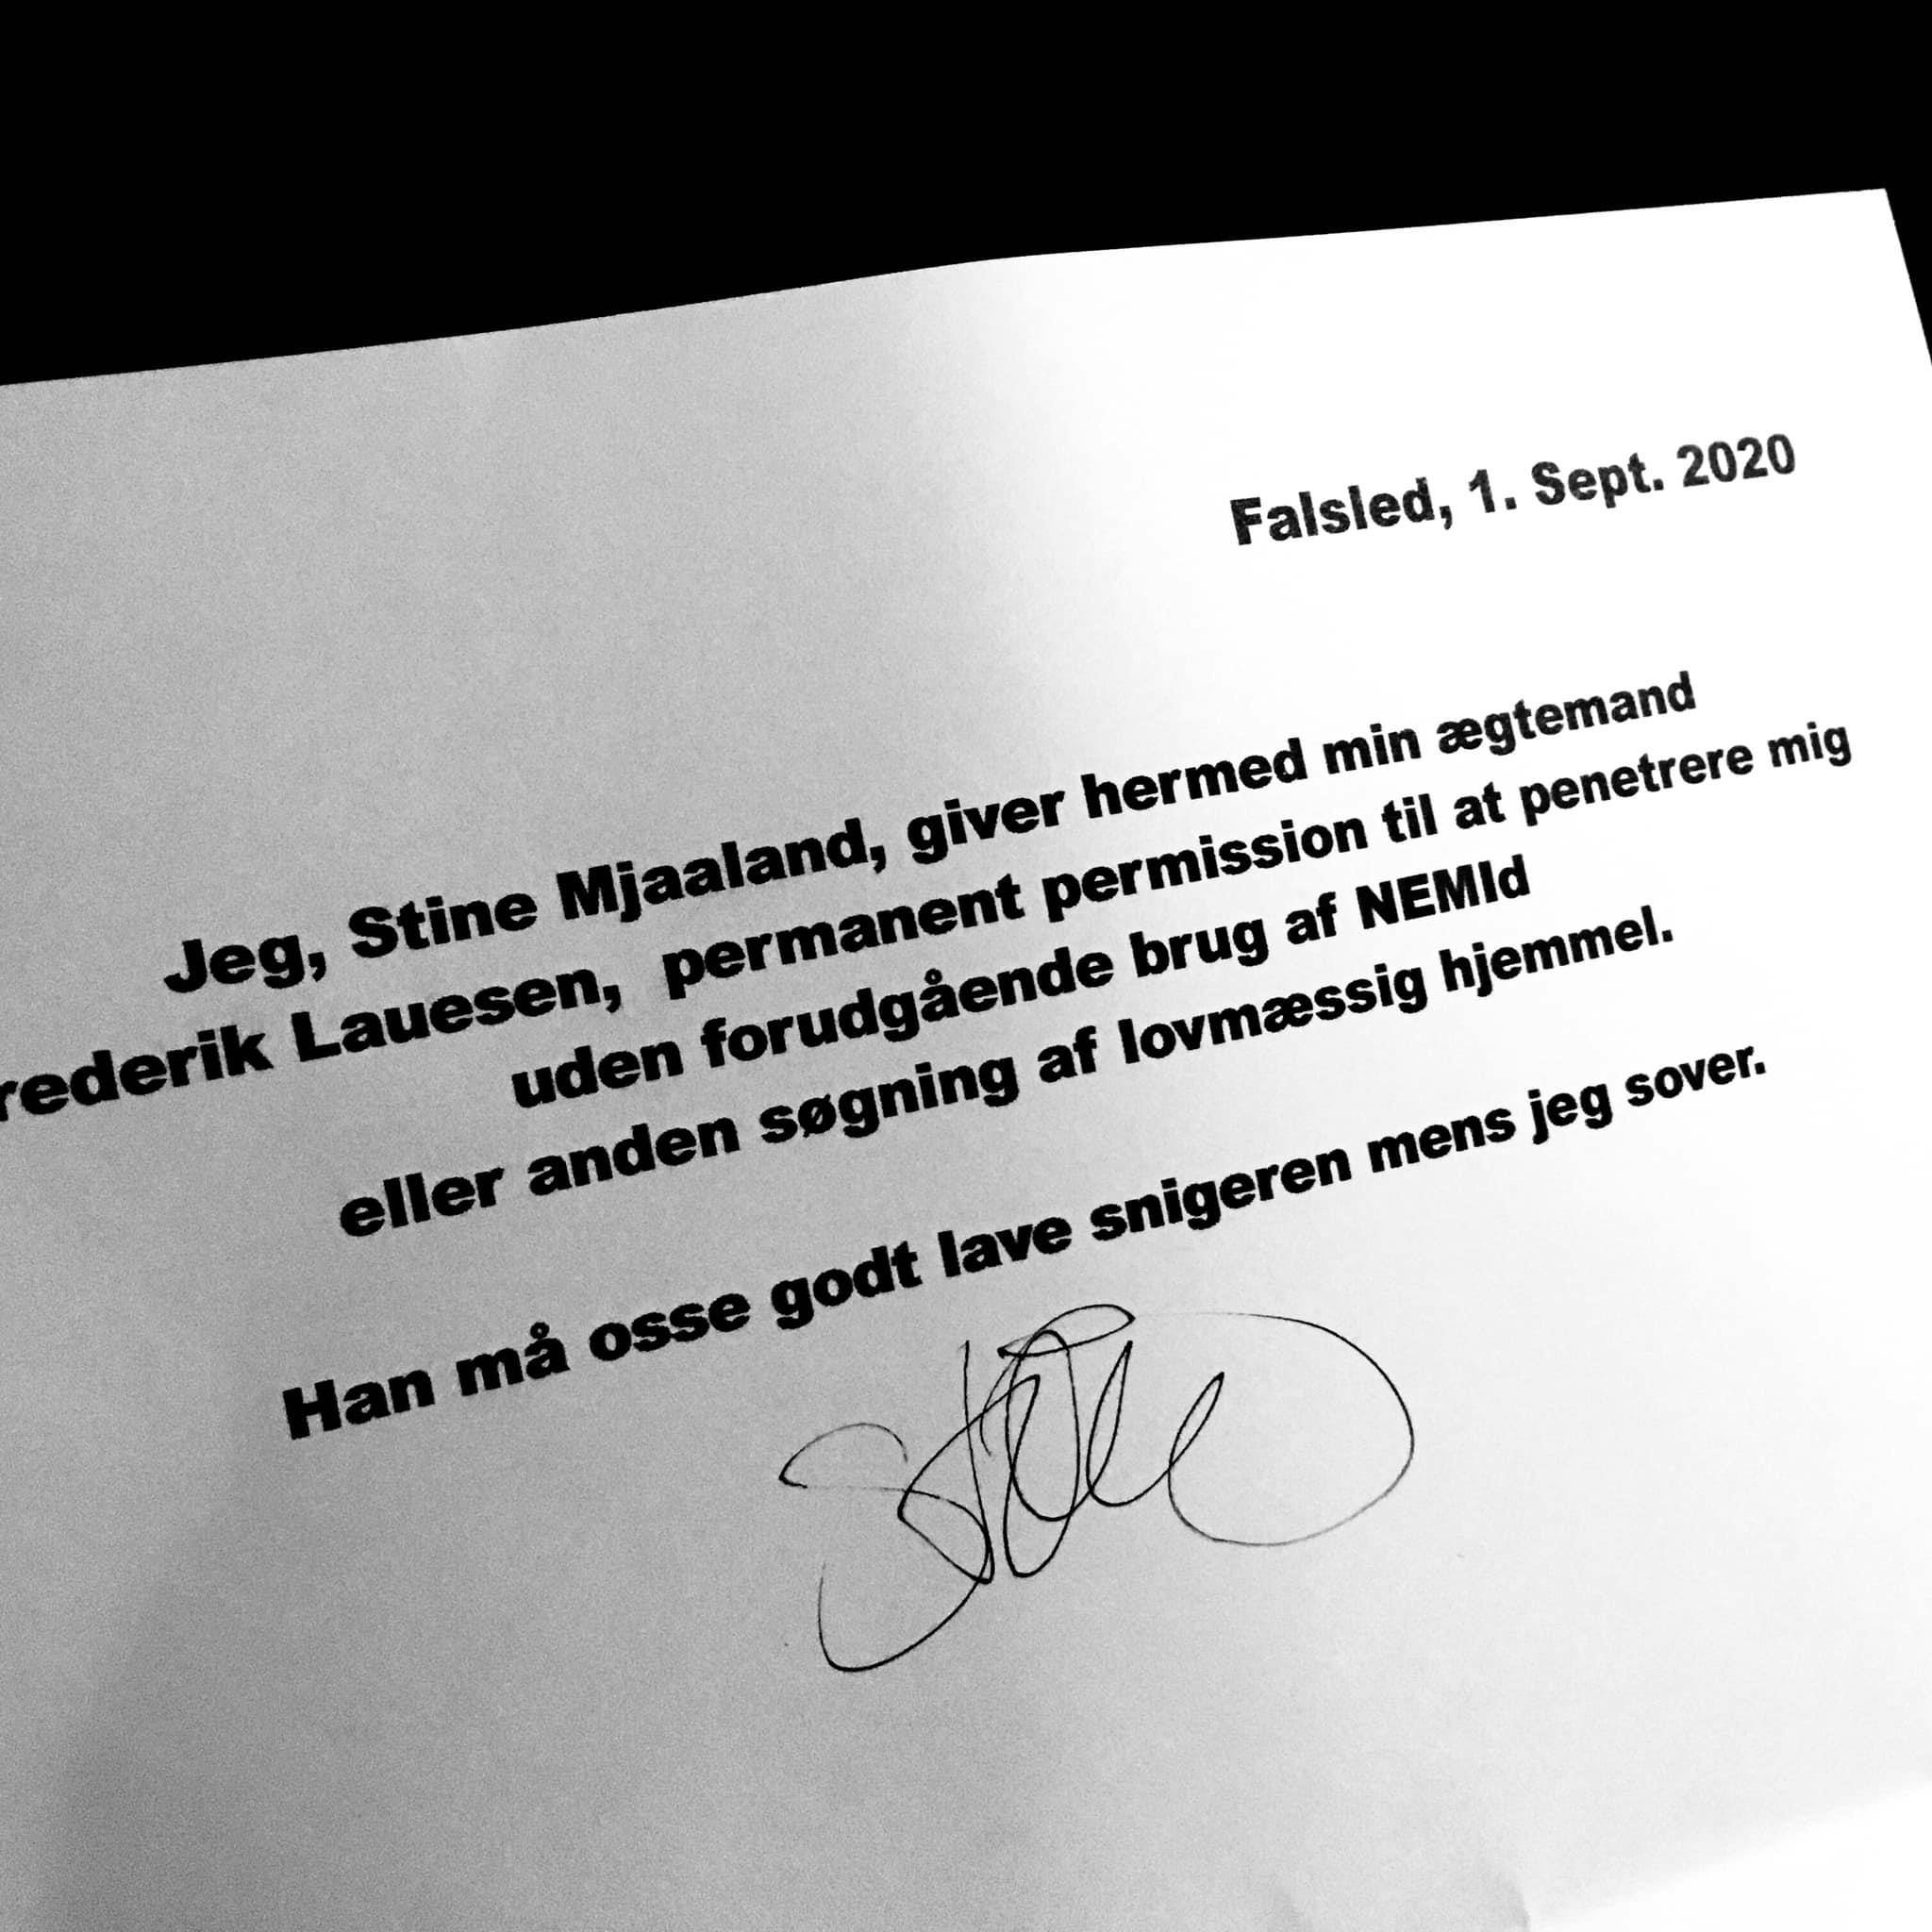 Falsled, 1. Sept. 2020
Jeg, Stine Mjaaland, giver hermed min ægtemand
rederik Lauesen, permanent permission til at penetrere mig
uden forudgående brug af NEMId
eller anden søgning af lovmæssig hjemmel.
Han må osse godt lave snigeren mens jeg sover.